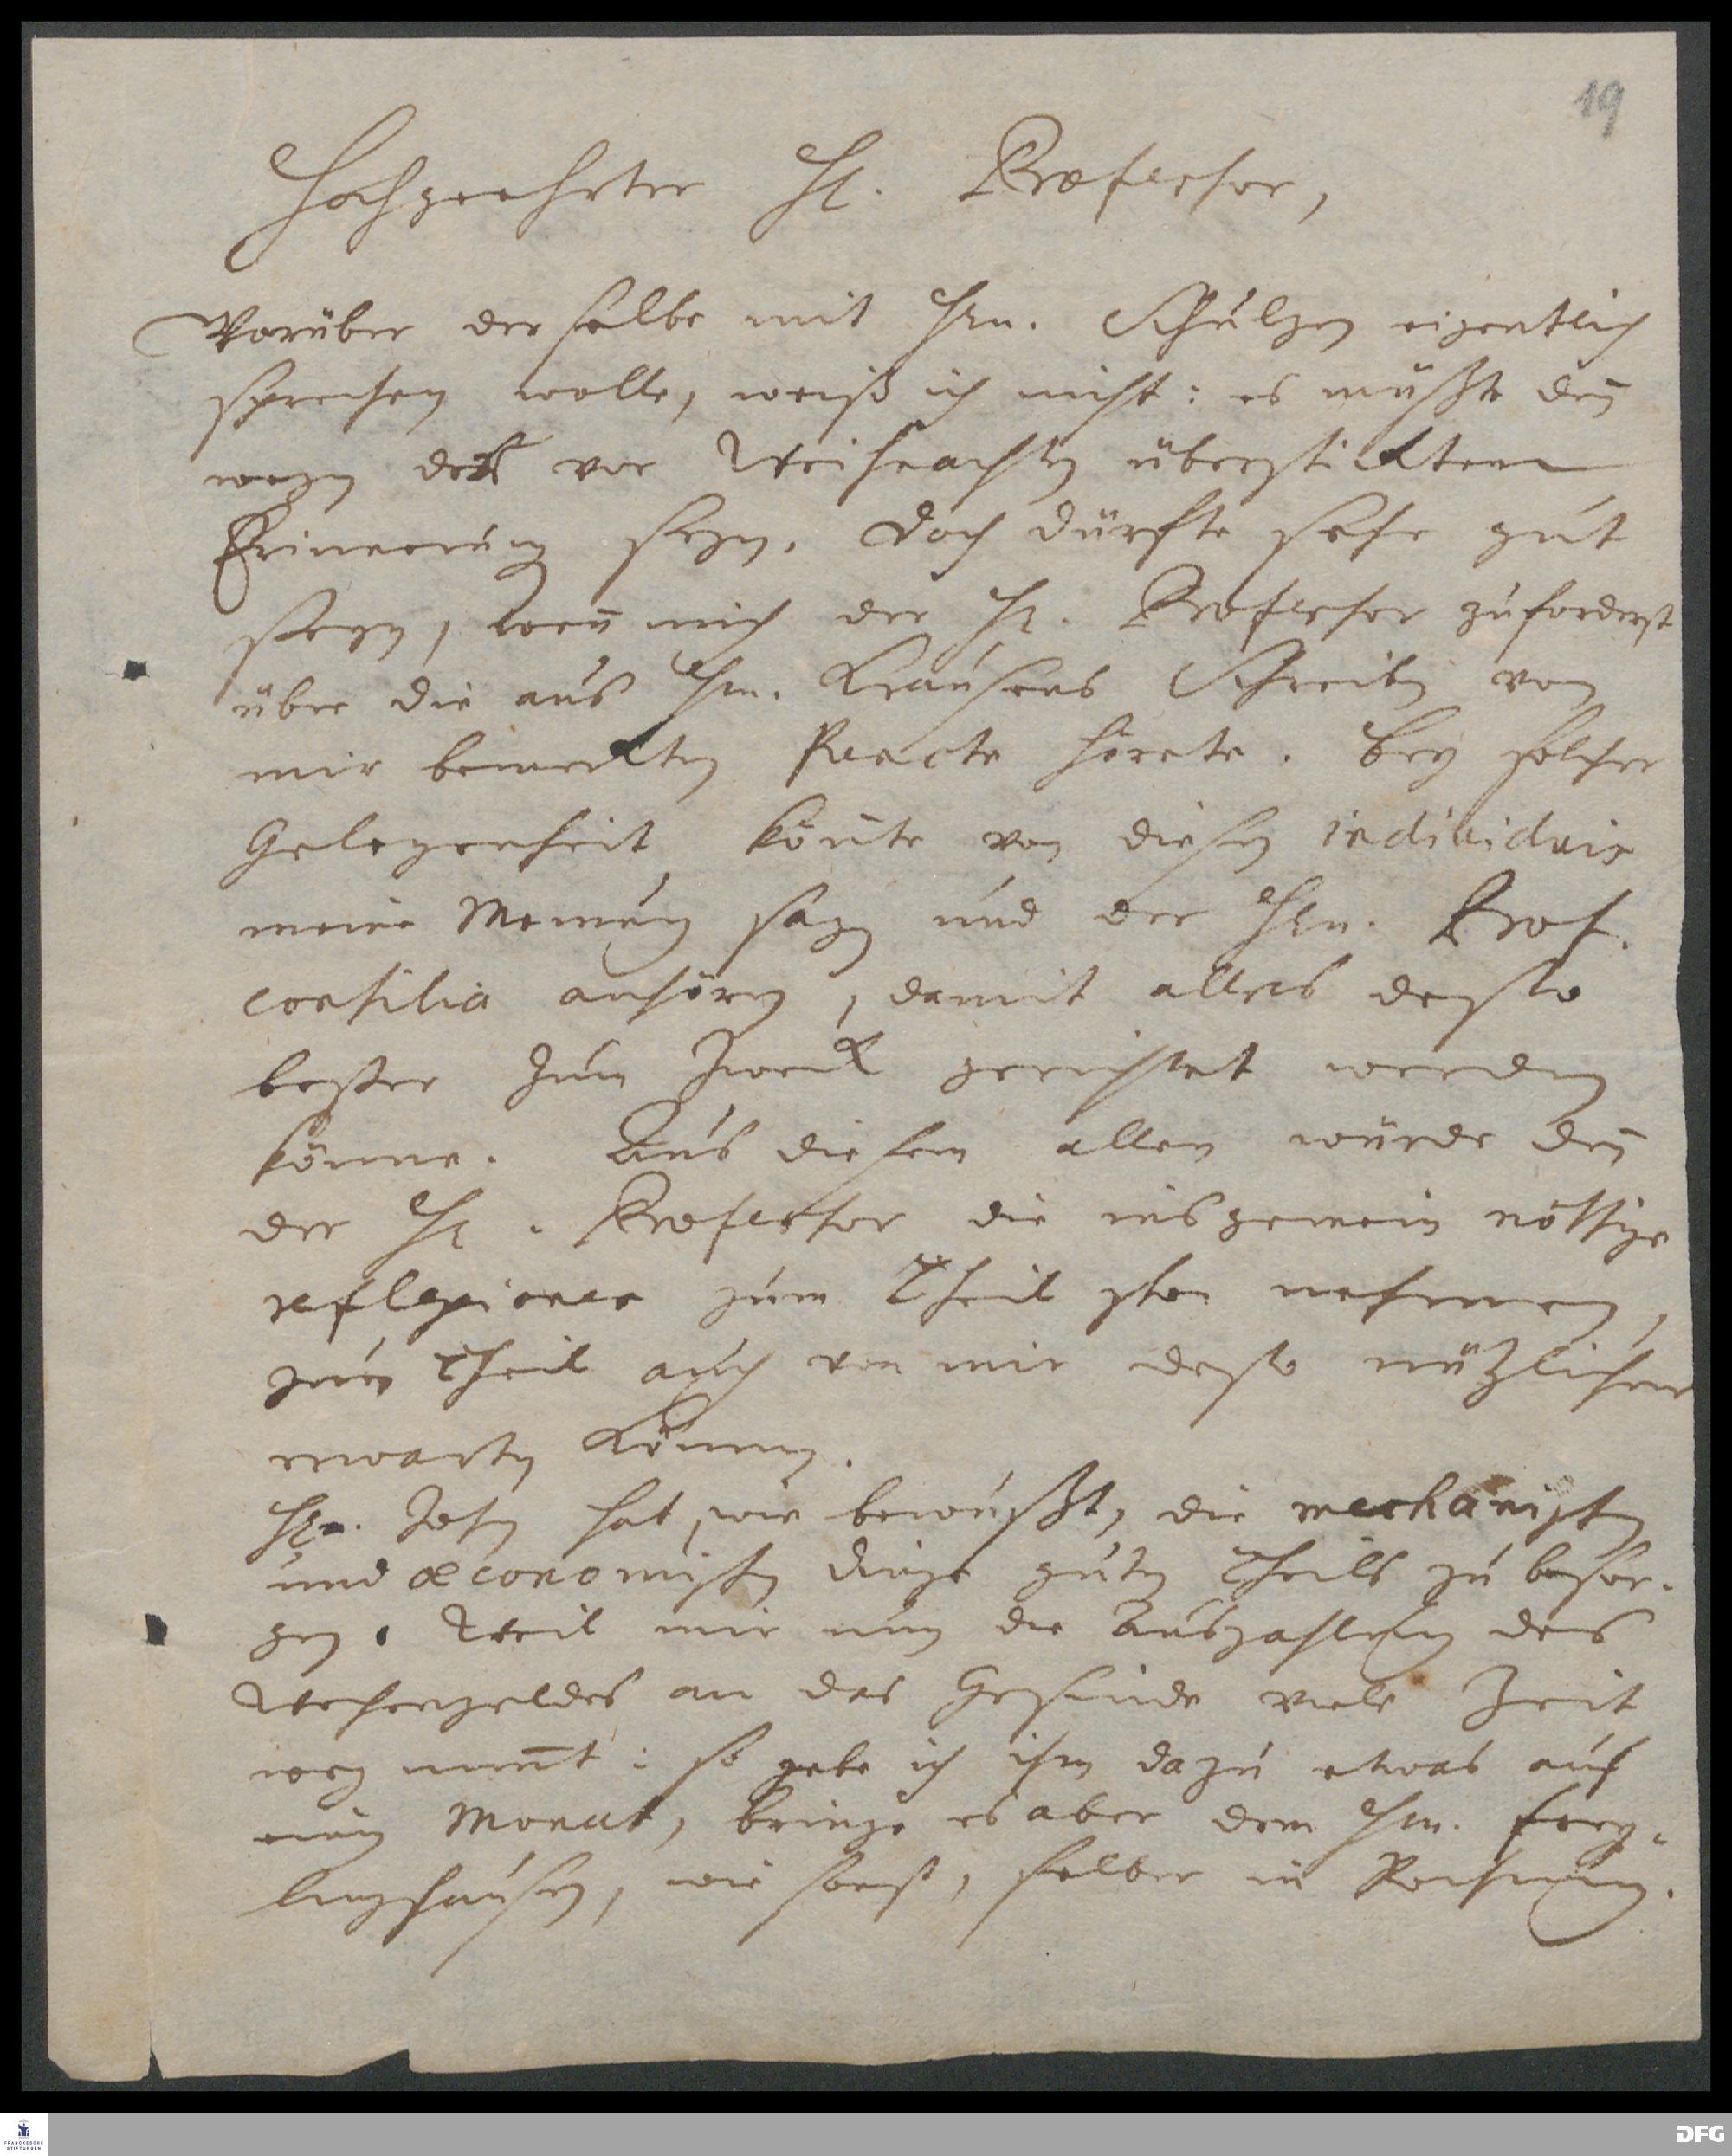 19
Hochgeehrter H. Professor,
Worüber derselbe mit Hrn. Schultzen eigentlich
sprechen wolle, weiß ich nicht: es müßte deñ
wegen der vor Weihnachten überschickten
Erinnerung seyn. Doch dürfte sehr gut
seyn, wen̄ mich der H. Professor zuforderst
über die aus Hrn. Krausens Schreiben von
mir bemerckten Puncte hörete. Bey solcher
Gelegenheit könte von diesen individuis
meine Meinung sagen und der Hrn. Prof.
consilia anhören, damit alles desto
besser zum Zweck gerichtet werden
könne. Aus diesem allen würde deñ
der H. Professor die insgemein nöthige
reflexiones zum Theil nehmen,
zum Theil auch von mir desto nützlicher
erwarten können.
Hr. John hat, wie bewußt, die mechanischen
und œconomischen Dinge guten Theils zu besor-
gen. Weil mir nun die Auszahlung des
Wochengeldes an das Gesinde viele Zeit
weg nim̄t: so gebe ich ihm dazu etwas auf
einen Monat, bringe es aber dem Hrn. Frey-
linghausen, wie sonst, selber in Rechnung.
DFG
FRANCKESCHE
STIFTUNGEN